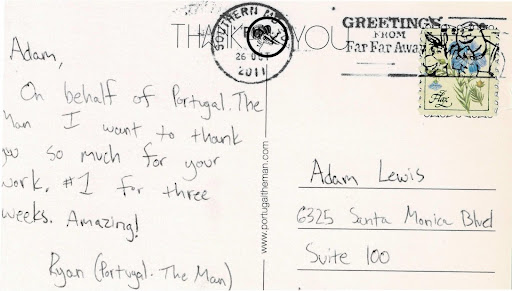 THANK YOU
SOUTHERN
26 OCT
2011
GREETINGS
FROM
Far Far Away
Flax
Adam,
On behalf of Portugal. The
Man I want to thank
you so much for your
work. #1 for three
weeks. Amazing!
Ryan (Portugal. The Man)
www.portugaltheman.com
Adam Lewis
6325 Santa Monica Blvd
Suite 100